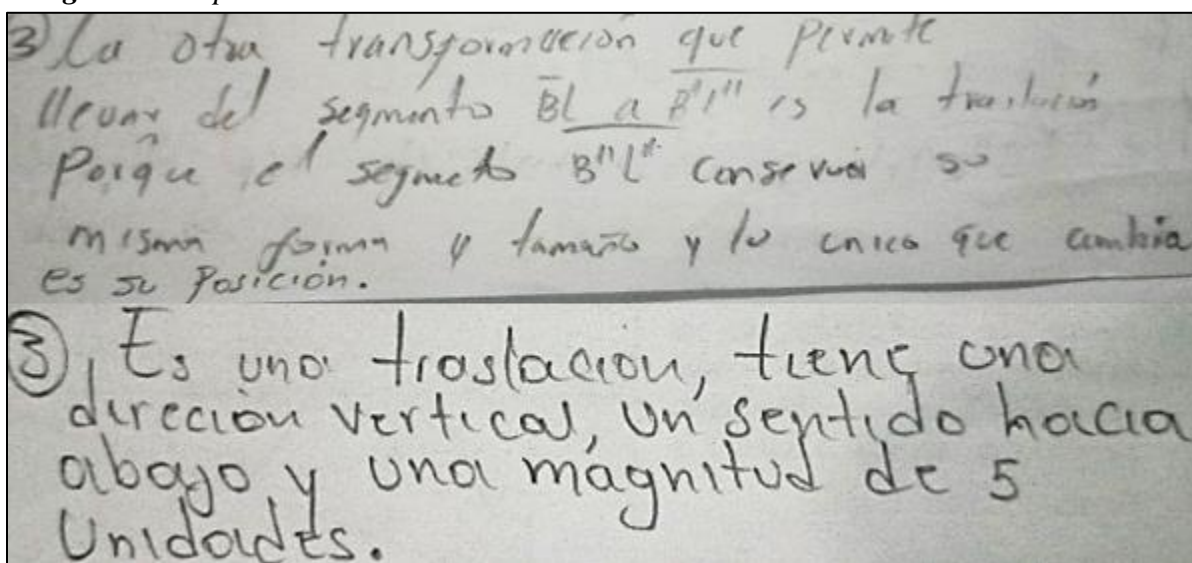 3) La otra transformación que permite
llevar del segmento BL a B"L" es la traslación
Porque el segmeto B"L" conserva su
misma forma y tamaño y lo unico que cambia
es su Posición.
③, Es una traslación, tiene una
direcion vertical, un sentido hacia
abajo, y una magnitud de 5
Unidades.